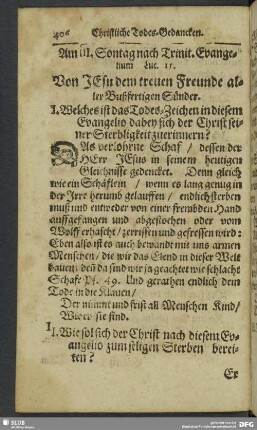 406 Christliche Todes-Gedancken.
Am III. Sontag nach Trinit. Evange-
lium Luc. 15.
Von JEsu dem treuen Freunde al-
ler Bußfertigen Sünder.
I. Welches ist das Todes-Zeichen in diesem
Evangelio dabey sich der Christ sei-
ner Sterbligkeit zuerinnern?
DAs verlohrne Schaf / dessen der
HErr JEsus in seinem heutigen
Gleichnisse gedencket. Denn gleich
wie ein Schäflein / wenn es lang genug in
der Irre herumb gelauffen / endlich sterben
muß und entweder von einer frembden Hand
auffgefangen und abgestochen oder vom
Wolff erhascht / zerrissen und gefressen wird:
Eben also ist es auch bewandt mit uns armen
Menschen / die wir das Elend in dieser Welt
bauen; deñ da sind wir ja geachtet wie schlacht
Schafe Ps. 49. Und gerathen endlich dem
Tode in die Klauen /
Der nimmt und frist all Menschen Kind /
Wie er sie find.
II. Wie sol sich der Christ nach diesem Ev-
angelio zum seligen Sterben berei-
ten?
Er
SLUB
DFG